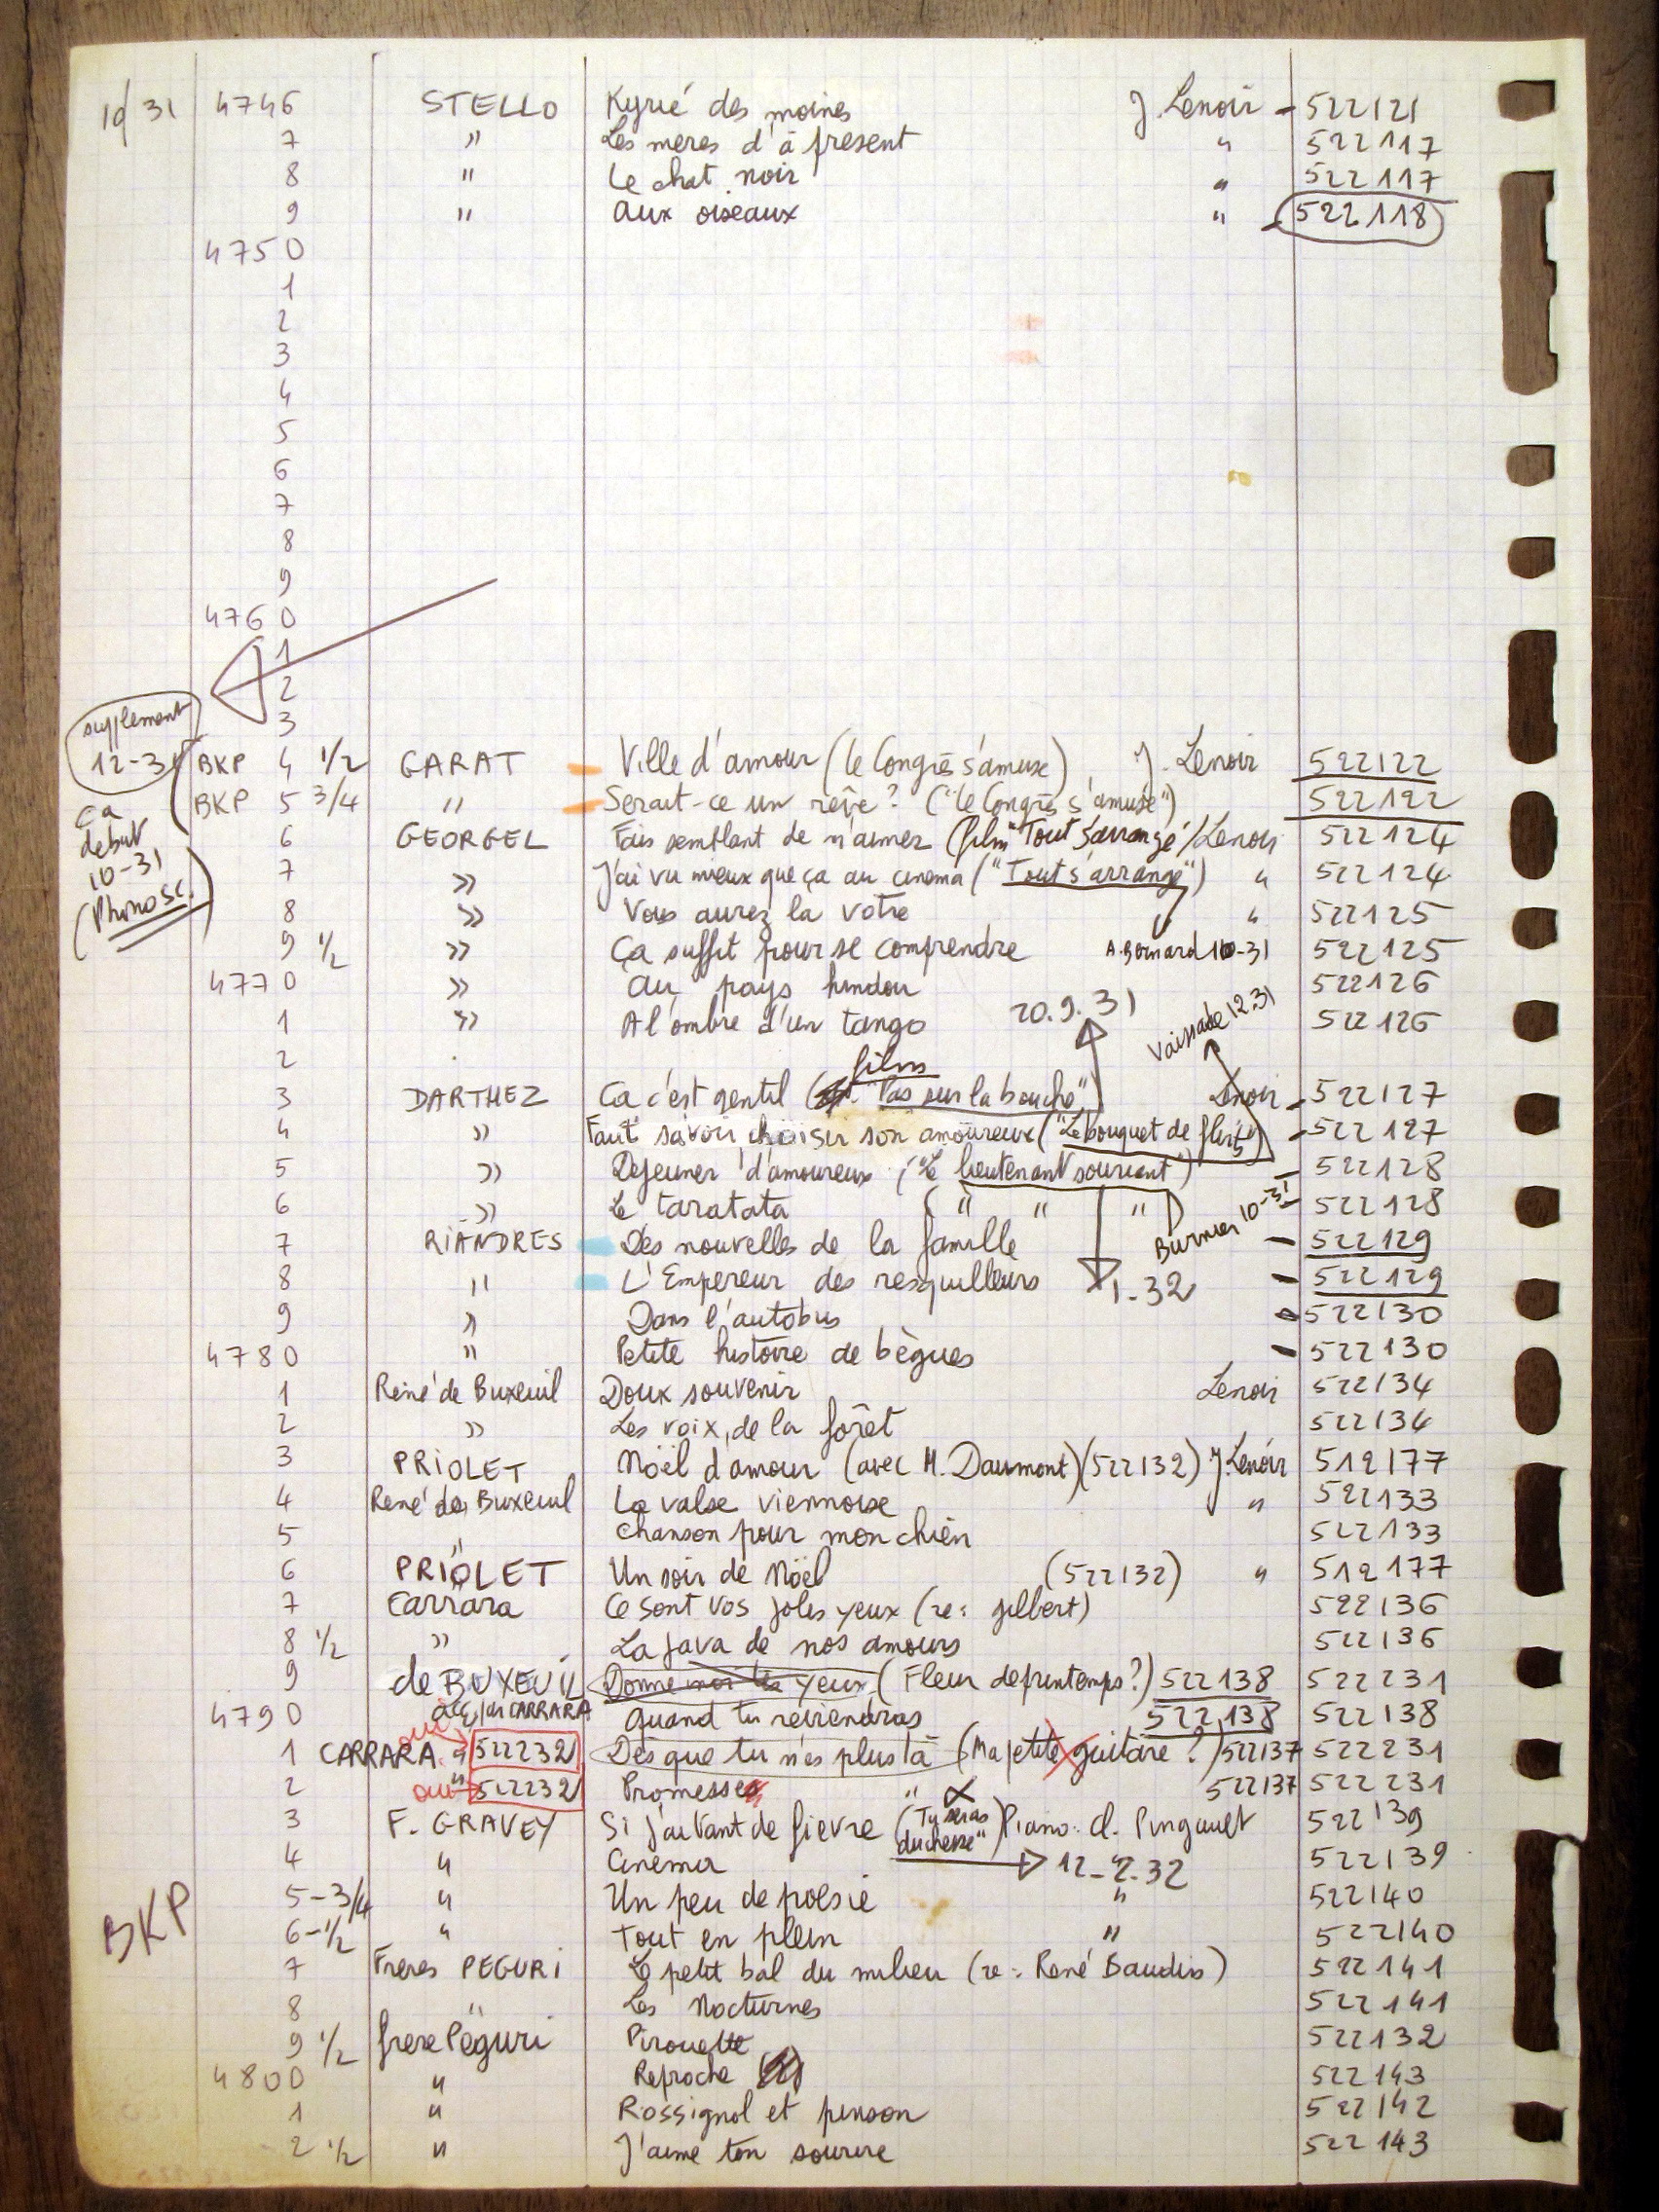 10/31 4746 STELLO Kyrié des moines J. Lenoir - 522121
7 " Les meres d'à present " 522117
8 " Le chat noir " 522117
9 " aux oiseaux " 522118
4750
1
2
3
4
5
6
7
8
9
4760
1
2
3
supplement 12-31
BKP 4 1/2 GARAT Ville d'amour (le Congrès s'amuse) J. Lenoir 522122
BKP 5 3/4 " Serait-ce un rêve? ("le Congrès s'amuse") 522122
ça debut 10-31 (Phonosc.)
6 GEORGEL Fais semblant de m'aimer (film "Tout s'arrange"/Lenoir 522124
7 " J'ai vu mieux que ça au cinema ("Tout s'arrange") " 522124
8 " Vous aurez la votre " 522125
9 1/2 " Ça suffit pour se comprendre A. Bernard 10-31 522125
4770 " Au pays hindou 522126
1 " A l'ombre d'un tango 20.9.31 522126
2 Vaissade 12.31
film
3 DARTHEZ Ca c'est gentil ("Pas sur la bouche") Lenoir - 522127
4 " Faut savoir choisir son amoureux ("Le bouquet de flirts") - 522127
5 " Dejeuner d'amoureux ("Le lieutenant souriant") - 522128
6 " Le taratata (" " ") - 522128
7 RIANDRES Des nouvelles de la famille Burnier 10-31 - 522129
8 " L'Empereur des resquilleurs 1-32 - 522129
9 " Dans l'autobus - 522130
4780 " Petite histoire de bègues - 522130
1 René de Buxeuil Doux souvenir Lenoir 522134
2 " Les voix de la forêt 522134
3 PRIOLET Noël d'amour (avec M. Daumont) (522132) J. Lenoir 512177
4 René de Buxeuil La valse viennoise " 522133
5 " Chanson pour mon chien 522133
6 PRIOLET Un soir de Noël (522132) " 512177
7 Carrara Ce sont vos jolis yeux (re: gilbert) 522136
8 1/2 " La java de nos amours 522136
9 de BUXEUIL Donne moi tes yeux (Fleur de printemps?) 522138 522231
4790 acc. par CARRARA quand tu reviendras 522138 522138
1 CARRARA oui 522232 Dès que tu n'es plus là (Ma petite guitare?) 522137 522231
2 " oui 522232 Promesses " 522137 522231
3 F. GRAVEY Si j'ai tant de fievre ("Tu seras duchesse") Piano: Cl. Pingault 522139
4 " Cinema 12-2.32 522139
5-3/4 " Un peu de poésie " 522140
BKP 6-1/2 " Tout en plein " 522140
7 Freres PEGURI Le petit bal du milieu (re: René Baudin) 522141
8 " Les Nocturnes 522141
9 1/2 frere Péguri Pirouette 522132
4800 " Reproche 522143
1 " Rossignol et pinson 522142
2 1/2 " J'aime ton sourire 522143